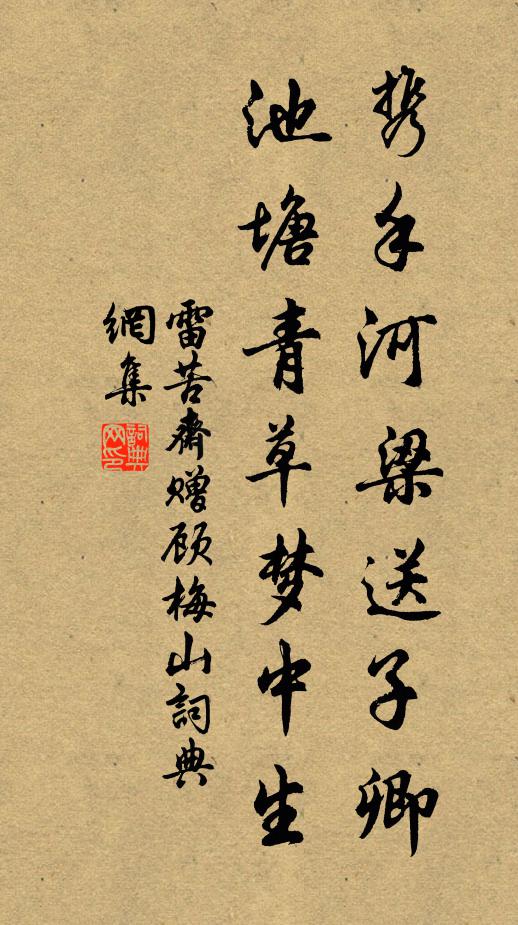 携手河梁送子卿
池塘青草梦中生
雷苦斋赠顾梅山詞典
網集
詞典
网印